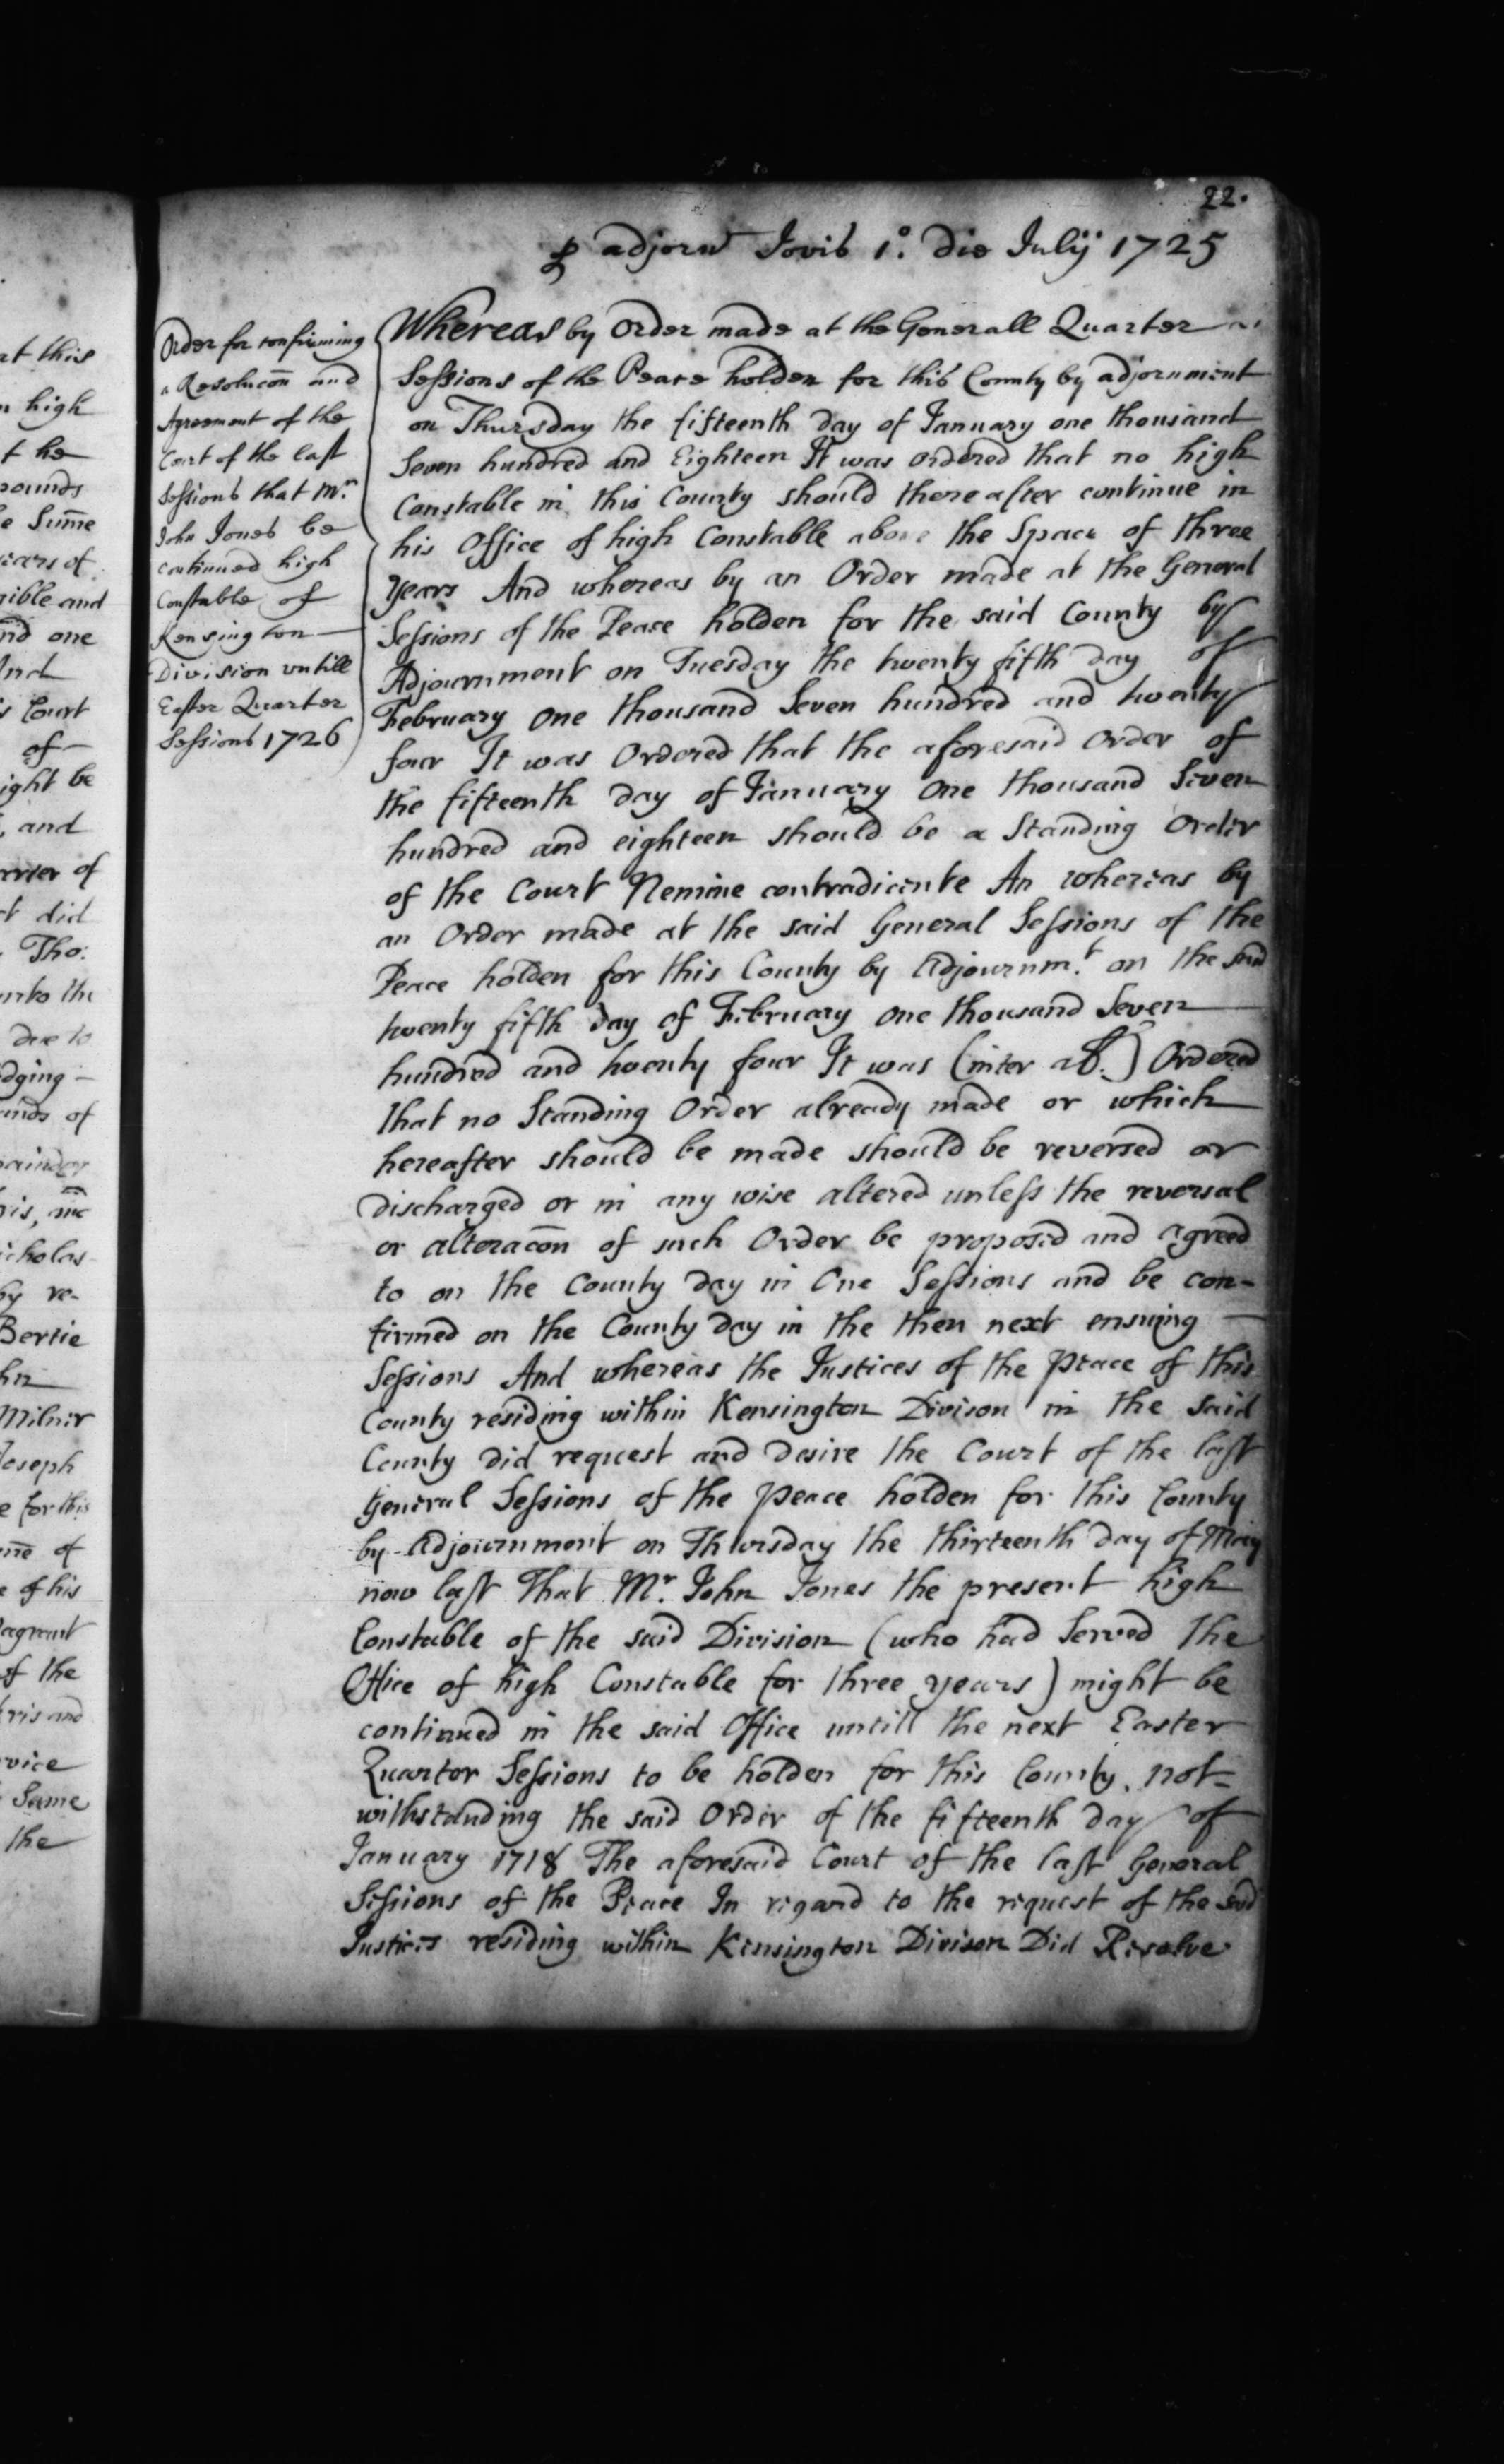 22.
⅌ adjorn Jovis 1º. die Julij 1725
Order for confirming
a Resolucon̄ and
Agreement of the
Court of the last
Sessions that Mr.
John Jones be
continued high
Constable of
Kensington
Division untill
Easter Quarter
Sessions 1726
Whereas by Order made at the Generall Quarter
Sessions of the Peace holden for this County by adjornment
on Thursday the fifteenth day of January one thousand
Seven hundred and Eighteen It was ordered that no high
Constable in this County should thereafter continue in
his Office of high Constable above the Space of three
Years And whereas by an Order made at the General
Sessions of the Peace holden for the said County by
Adjournment on Tuesday the twenty fifth day of
February One thousand Seven hundred and twenty
four It was Ordered that the aforesaid Order of
the fifteenth day of January One thousand Seven
hundred and eighteen should be a Standing Order
of the Court Nemine contradicente An whereas by
an Order made at the said General Sessions of the
Peace holden for this County by Adjournm.t on the said
twenty fifth day of February One thousand Seven
hundred and twenty four It was (inter al.) Ordered
that no Standing Order already made or which
hereafter should be made should be reversed or
discharged or in any wise altered unless the reversal
or alteracōn of such Order be proposed and agreed
to on the County day in One Sessions and be con-
firmed on the County day in the then next ensuing
Sessions And whereas the Justices of the Peace of this
County residing within Kensington Divison in the said
County did request and desire the Court of the last
General Sessions of the Peace holden for this County
by Adjournment on Thursday the thirteenth day of May
now last That Mr. John Jones the present high
Constable of the said Division (who had Served the
Office of high Constable for three years) might be
continued in the said Office untill the next Easter
Quarter Sessions to be holden for this County not-
withstanding the said Order of the fifteenth day of
January 1718 The aforesaid Court of the last General
Sessions of the Peace In regard to the request of the said
Justices residing within Kensington Divison Did Resolve